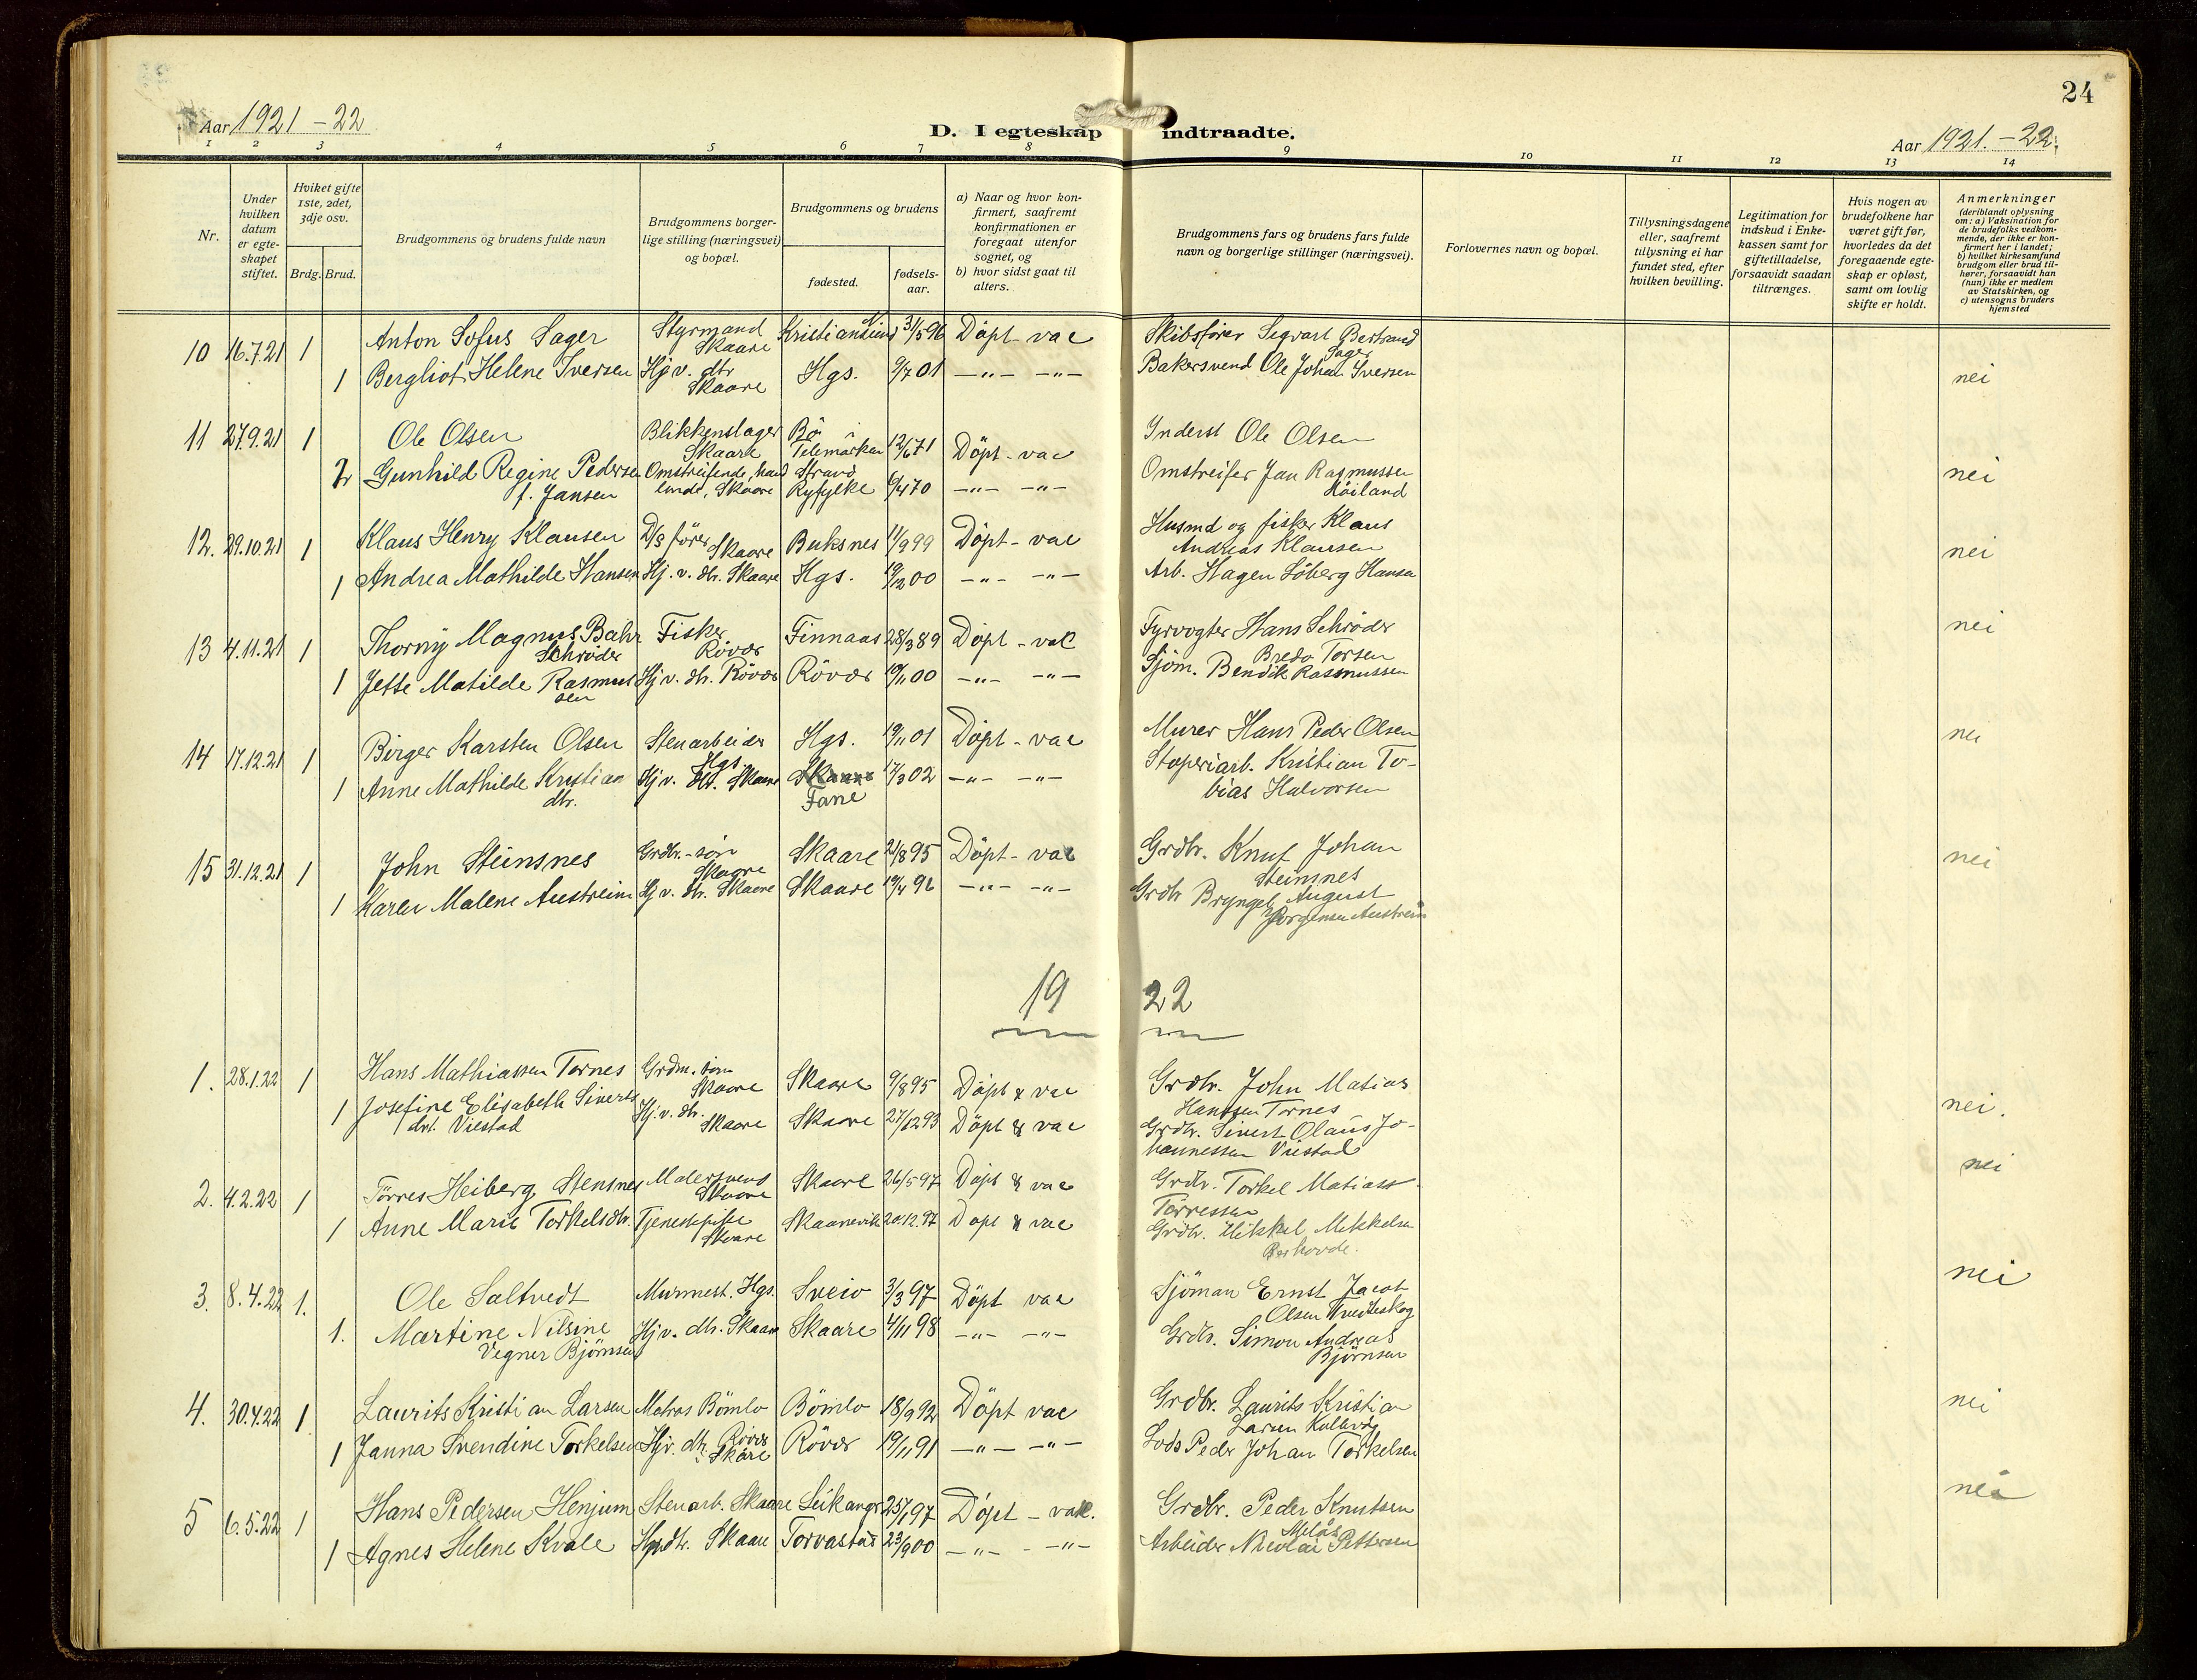 24
Aar 1921-22
D. I egteskap indtraadte.
Aar 1921.-22.
1 2 3 4 5 6 7 8 9 10 11 12 13 14
Nr.
Under hvilken datum er egteskapet stiftet.
Hviket gifte 1ste, 2det, 3dje osv.
Brdg. Brud.
Brudgommens og brudens fulde navn
Brudgommens borgerlige stilling (næringsvei) og bopæl.
Brudgommens og brudens
fødested.
fødselsaar.
a) Naar og hvor konfirmert, saafremt konfirmationen er foregaat utenfor sognet, og
b) hvor sidst gaat til alters.
Brudgommens fars og brudens fars fulde navn og borgerlige stillinger (næringsvei).
Forlovernes navn og bopæl.
Tillysningsdagene eller, saafremt tillysning ei har fundet sted, efter hvilken bevilling.
Legitimation for indskud i Enkekassen samt for giftetilladelse, forsaavidt saadan tiltrænges.
Hvis nogen av brudefolkene har været gift før, hvorledes da det foregaaende egteskap er opløst, samt om lovlig skifte er holdt.
Anmerkninger
(deriblandt oplysning om: a) Vaksination for de brudefolks vedkommende, der ikke er konfirmert her i landet; b) hvilket kirkesamfund brudgom eller brud tilhører, forsaavidt han (hun) ikke er medlem av Statskirken, og c) utensogns bruders hjemsted
10 16.7.21 1 Anton Sofus Sager Styrmand Skaare Kristiansund N 31/5 96 Döpt - vac Skibsfører Segvart Bertrand Sager
1 Bergliot Helene Iversen Hj v. dtr Skaare Hgs. 9/7 01 -"- -"- Bakersvend Ole Johan Iversen nei
11 27.9.21 1 Ole Olsen Blikkenslager Skaare Bö Telemarken 12/6 71 Döpt - vac Inderst Ole Olsen
2 Gunhild Regine Pedersen f. Jansen Omstreifende, handlende, Skaare Strand Ryfylke 6/4 70 -"- -"- Omstreifer Jan Rasmussen Höiland nei
12. 29.10.21 1 Klaus Henry Klausen D/S förer Skaare Buksnes 11/9 99 Döpt - vac Husmd og fisker Klaus Andreas Klausen nei
1 Andrea Mathilde Hansen Hj. v. dtr. Skaare Hgs. 19/12 00 -"- -"- Arb. Hagen Söberg Hansen
13 4.11.21 1 Thorny Magnus Bahr Schröder Fisker Rövær Finnaas 28/3 89 Döpt - vac Fyrvogter Hans Schröder Bredo Torsen nei
1 Jette Matilde Rasmussen Hj v. dtr. Rövær Rövær 10/11 00 -"- -"- Sjöm. Bendik Rasmussen
14 17.12.21 1 Birger Karsten Olsen Stenarbeider Hgs. Hgs. 19/11 01 Döpt - vac Murer Hans Peder Olsen nei
1 Anne Mathilde Kristian dtr. Hj v. dtr. Skaare Skaare Fane 17/3 02 -"- -"- Støperiarb. Kristian Tobias Halvorsen
15 31.12.21 1 John Steinsnes Grdbr.-sön Skaare Skaare 21/8 95 Döpt - vac Grdbr. Knut Johan Steinsnes nei
1 Karen Malene Austreim Hj v. dtr. Skaare Skaare 19/4 96 -"- -"- Grdbr Bryngel August Jörgensen Austreim
19 22
1. 28.1.22 1 Hans Mathiassen Tornes Grdm. sön Skaare Skaare 9/8 95 Döpt & vac Grdbr. John Matias Hanssen Tornes nei.
1 Josefine Elisabeth Siverts drt. Viestad Hj. v. dtr. Skaare Skaare 27/12 93 Döpt & vac Grdbr. Sivert Olaus Johannessen Viestad
2. 4.2.22 1 Törres Heiberg Stensnes Malersvend Skaare Skaare 26/5 97 Döpt & vac Grdbr. Torkel Matiass Törressen nei
1 Anne Marie Torkelsdtr. Tjenestepike Skaare Skaanevik 20.12.97 Döpt & vac Grdbr. Mikkel Mikkelsen
3. 8.4.22 1. Ole Saltvedt Murmest. Hgs. Sveio 3/3 97 Döpt vac Sjöman Ernst Jacob Olsen nei
1. Martine Nilsine Vegner Björnsen Hj v. dtr. Skaare Skaare 4/11 98 -"- -"- Grdbr. Simon Andreas Björnsen
4. 30.4.22 1 Laurits Kristian Larsen Matros Bömlo Bömlo 18/9 92 Döpt vac Grdbr. Laurits Kristian Larsen nei
1 Janna Svendine Torkelsen Hjv. dtr. Rövær Skare Rövær 19/11 91 -"- -"- Lods Peder Johan Torkelsen
5 6.5.22 1 Hans Pedersen Henjum Stenarb. Skaare Leikanger 25/1 97 Döpt - vakc. Grdbr. Peder Knutsen nei
1 Agnes Helene Kvale Hjvdtr. Skaare Torvastad 23/9 00 -"- -"- Arbeider Nicolai Pettersen